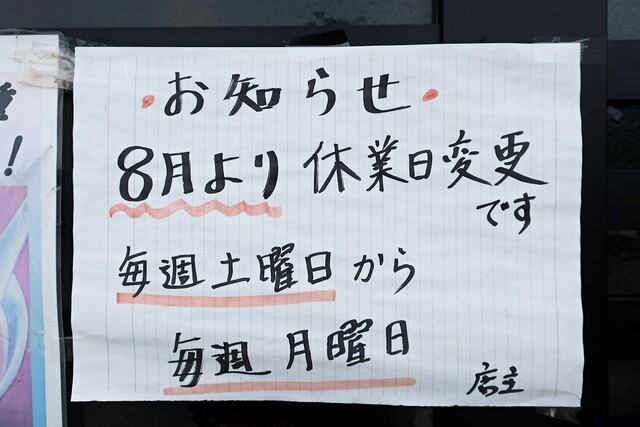 ・お知らせ・
8月より休業日変更
です
毎週土曜日から
毎週月曜日
店主
！